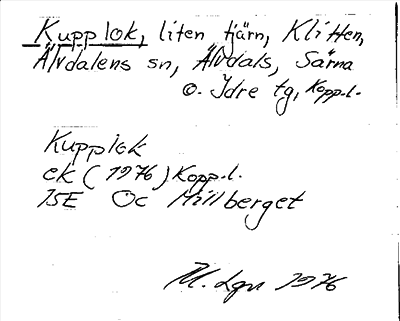 Kupplok, liten tjärn, Klitten,
Älvdalens sn, Älvdals, Särna
o. Idre tg, Kopp.l.
Kupplok
ek (1976) Kopp.l.
15E Öc Millberget
M. Lgn 1976